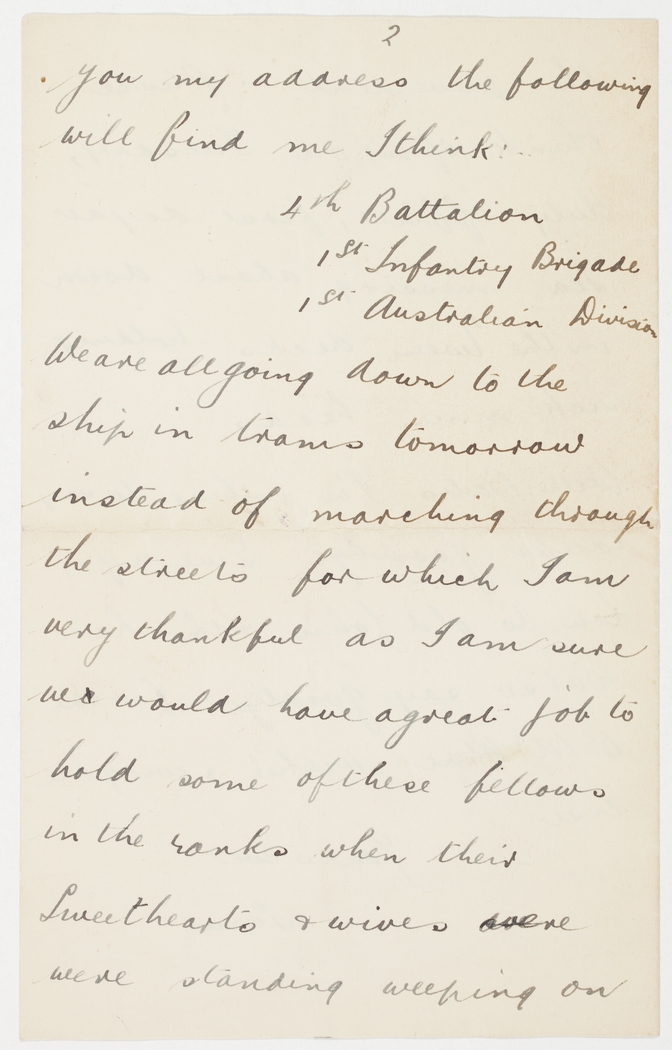 2
you my address the following
will find me I think:-
4th Battalion
1st Infantry Brigade
1st Australian Division
We are all going down to the
ship in trams tomorrow
instead of marching through
the streets for which I am
very thankful as I am sure
we would have a great job to
hold some of these fellows
in the ranks when their
Sweethearts & wives were
were standing weeping on